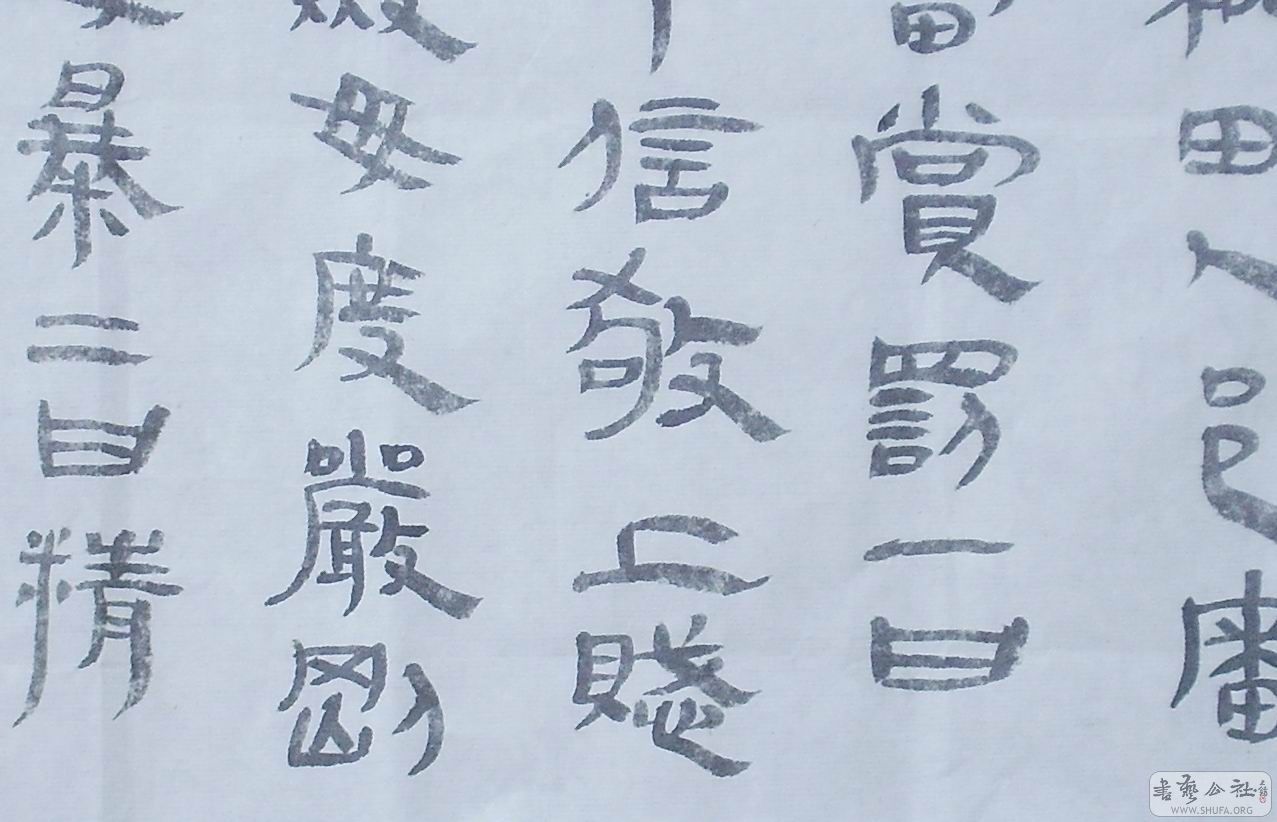 田人邑審
當賞罰一曰
中信敬上賦
斂毋度嚴剛
毋暴二曰精
書藝公社
WWW.SHUFA.ORG